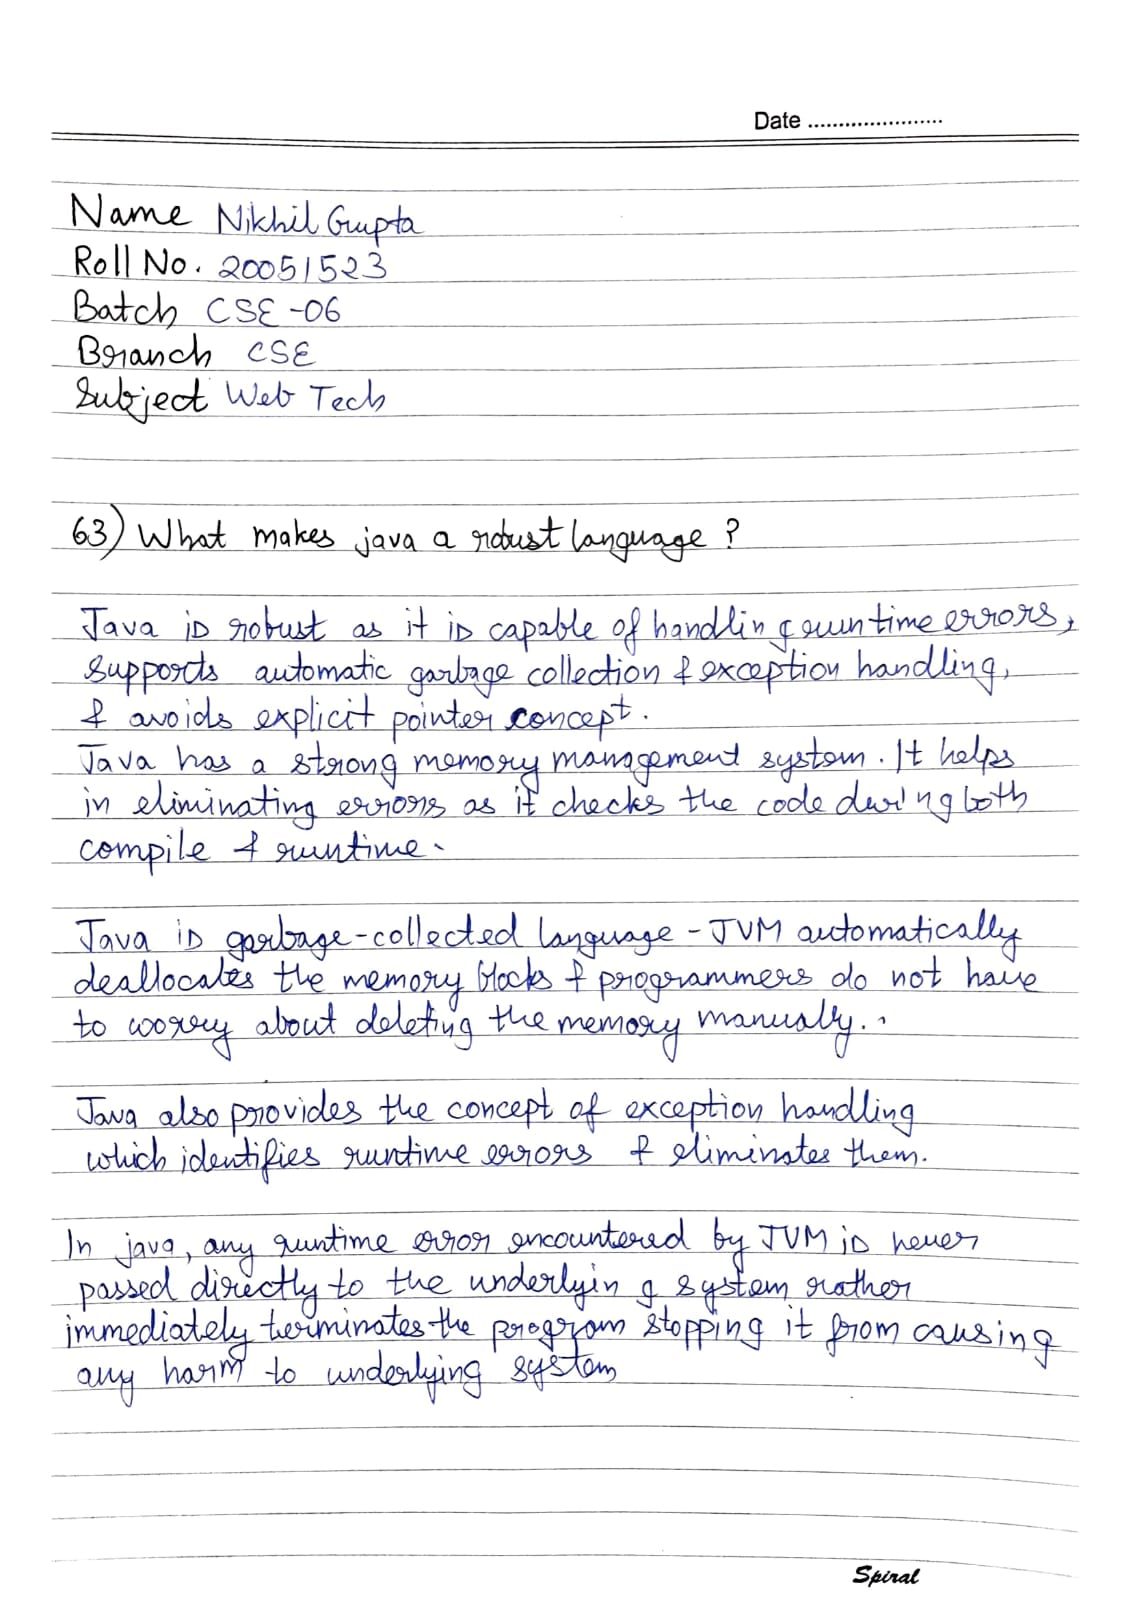 Date ......................
Name Nikhil Gupta
Roll No. 20051523
Batch CSE-06
Branch CSE
Subject Web Tech
63) What makes java a robust language ?
Java is robust as it is capable of handling runtime errors,
supports automatic garbage collection & exception handling,
& avoids explicit pointer concept.
Java has a strong memory management system. It helps
in eliminating errors as it checks the code during both
compile & runtime.
Java is garbage-collected language - JVM automatically
deallocates the memory blocks & programmers do not have
to worry about deleting the memory manually..
Java also provides the concept of exception handling
which identifies runtime errors & eliminates them.
In java, any runtime error encountered by JVM is never
passed directly to the underlying system rather
immediately terminates the program stopping it from causing
any harm to underlying system
Spiral